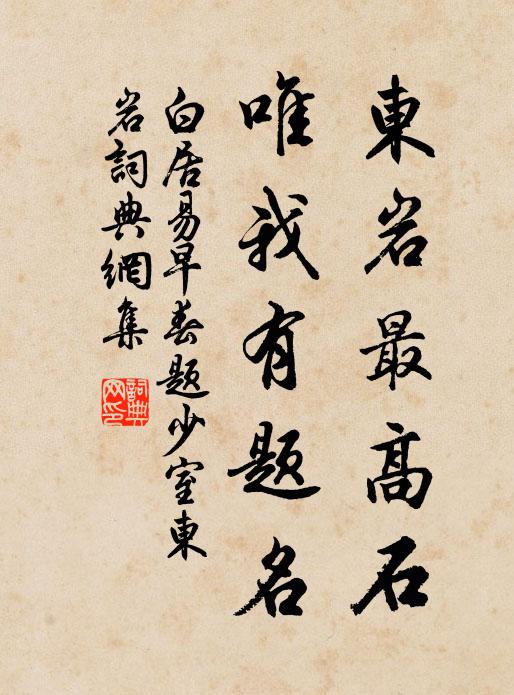 東岩最高石
唯我有題名
白居易早春題少室東
岩詞典網集
詞典
网印